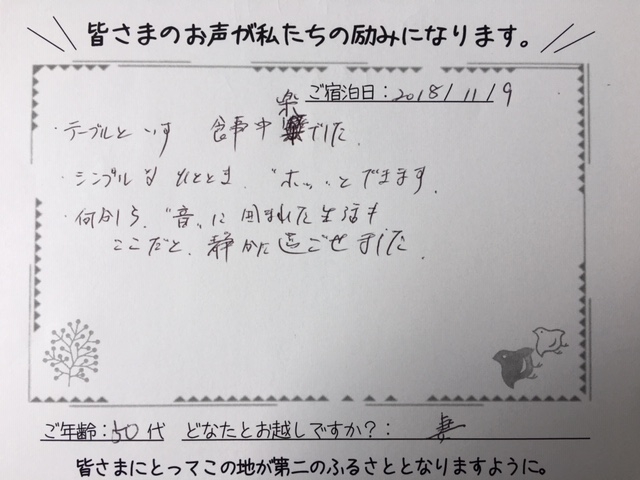 皆さまのお声が私たちの励みになります。
ご宿泊日:2018/11/9
・テーブルといす 食事中楽でした。
・シンプルなひととき、"ホッ"とできます。
・何かしら、"音"に囲まれた生活も
ここだと、静かに過ごせました。
ご年齢:50代 どなたとお越しですか?: 妻
皆さまにとってこの地が第二のふるさととなりますように。